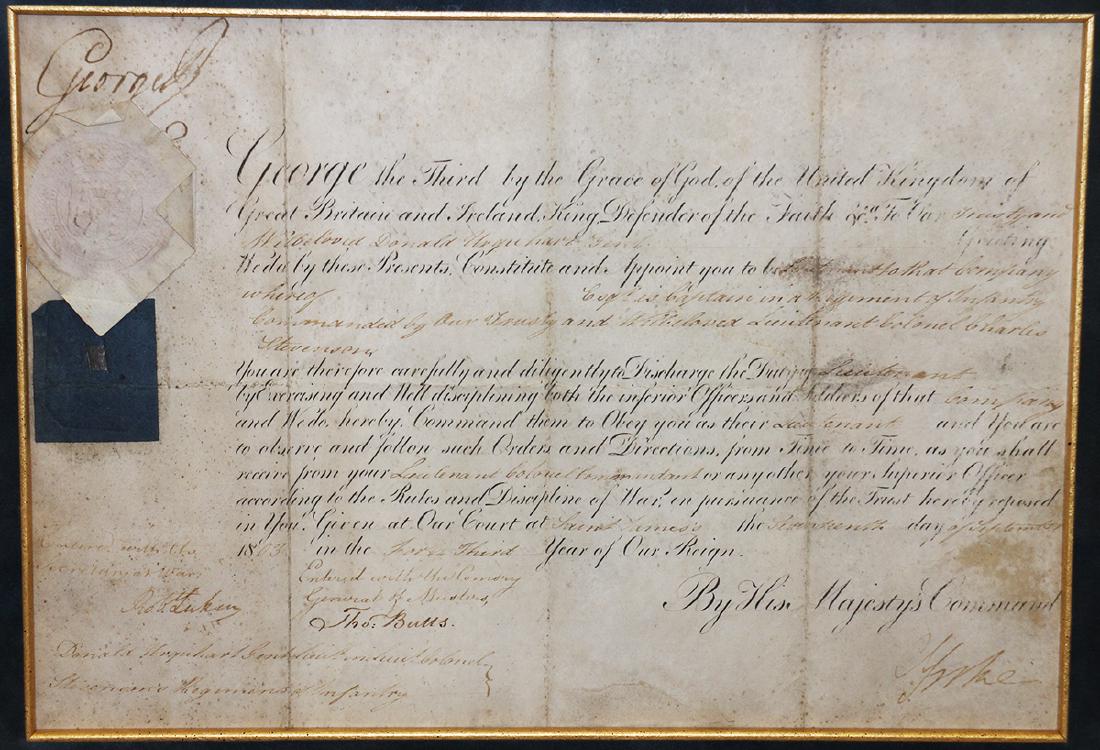 George R
George the Third by the Grace of God, of the United Kingdom of
Great Britain and Ireland, King, Defender of the Faith &ca. To Our Trusty and
Wellbeloved Donald Urquhart Gent. Greeting
We do by these Presents, Constitute and Appoint you to be to that Company
whereof Esqr. is Captain in a Regiment of Infantry
Commanded by Our Trusty and Wellbeloved Lieutenant Colonel Charles
Stevenson
You are therefore carefully and diligently to Discharge the Duty of Lieutenant
by Exercising and Well disciplining both the inferior Officers and Soldiers of that Company
and We do hereby Command them to Obey you as their Lieutenant and You are
to observe and follow such Orders and Directions, from Time to Time, as you shall
receive from your Lieutenant Colonel Commandant or any other your Superior Officer
according to the Rules and Discipline of War, in pursuance of the Trust hereby reposed
in You. Given at Our Court at Saint James's the day of September
1803 in the Forty Third Year of Our Reign.
Entered with the
Secretary at War
Entered with the Comary
General of Musters,
Tho: Butts.
By His Majesty's Command
Donald Urquhart Gent Lieut. in Lieut. Colonel
Stevenson's Regiment of Infantry